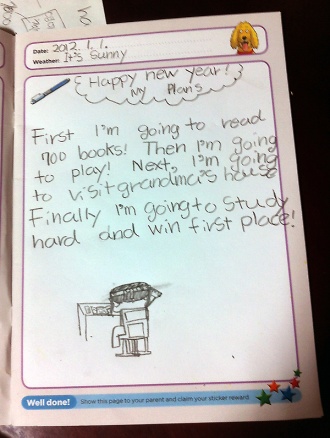 Date: 2012. 1. 1.
Weather: It's Sunny
Happy new year!
My Plans
First I'm going to read
700 books! Then I'm going
to play! Next, I'm going
to visit grandma's house
Finally I'm going to study
hard and win first place!
Well done! Show this page to your parent and claim your sticker reward